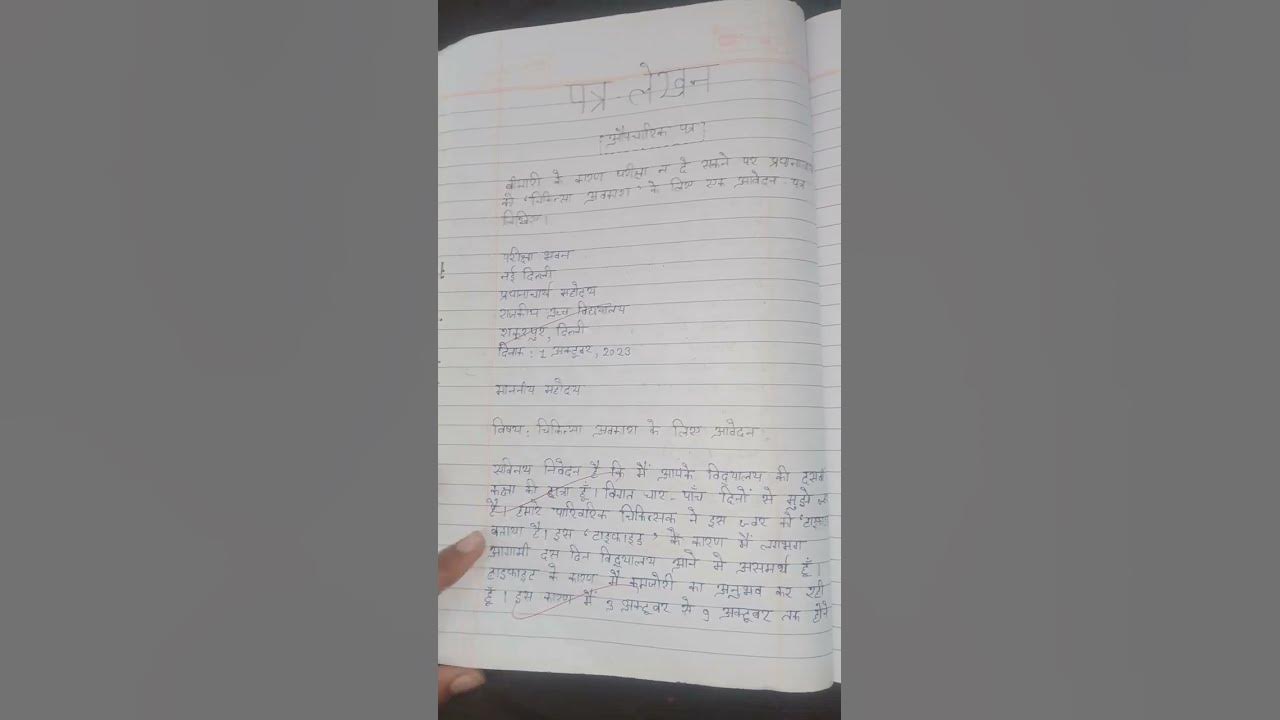 पत्र-लेखन
[औपचारिक पत्र]
बीमारी के कारण परीक्षा न दे सकने पर
को 'चिकित्सा अवकाश' के लिए एक आवेदन-पत्र
लिखिए।
परीक्षा भवन
नई दिल्ली
प्रधानाचार्य महोदय
राजकीय उच्च विद्यालय
शकूरपुर, दिल्ली
दिनांक : 1 अक्टूबर, 2023
माननीय महोदय
विषय: चिकित्सा अवकाश के लिए आवेदन
सविनय निवेदन है कि मैं आपके विद्यालय की दसवीं
कक्षा की छात्रा हूँ। विगत चार-पाँच दिनों से मुझे
है। हमारे पारिवारिक चिकित्सक ने इस ज्वर को
बताया है। इस 'टाइफाइड' के कारण मैं लगभग
आगामी दस दिन विद्यालय आने में असमर्थ हूँ।
टाइफाइट के कारण मैं कमजोरी का अनुभव कर रही
हूँ। इस कारण मैं 3 अक्टूबर से 9 अक्टूबर तक होने